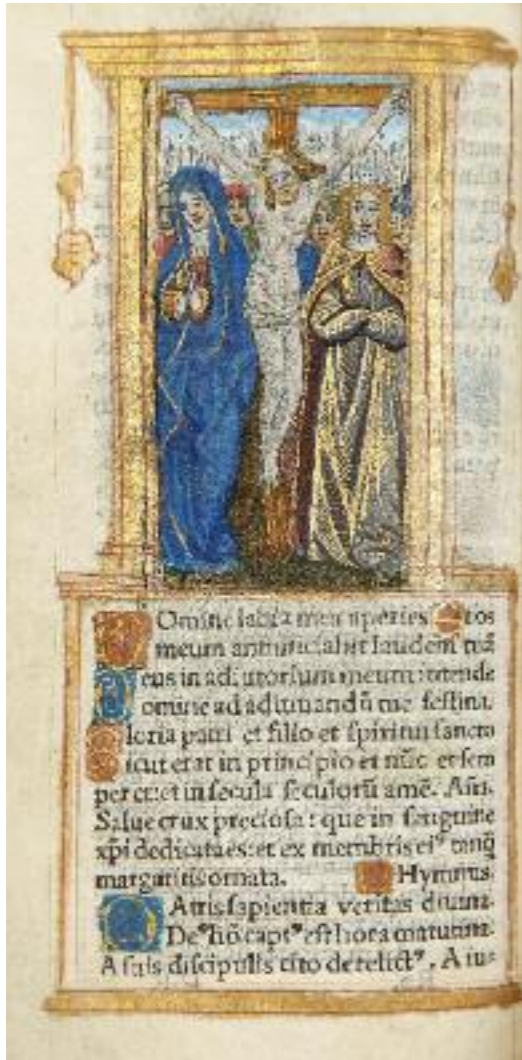 Omine labia mea aperies et os
meum annunciabit laudem tuā
eus in adiutorium meum intende
omine ad adiuuandū me festina.
loria patri et filio et spiritui sancto
icut erat in principio et nūc et sem
per et in secula seculorū amē. Añ.
Salue crux preciosa: que in sanguine
xp̄i dedicata es: et ex membris eiꝰ tanq̄
margaritis ornata. Hymnus.
Atris sapientia veritas diuina
Deꝰ hō captꝰ est hora matutina.
A suis discipulis cito derelictꝰ. A iu